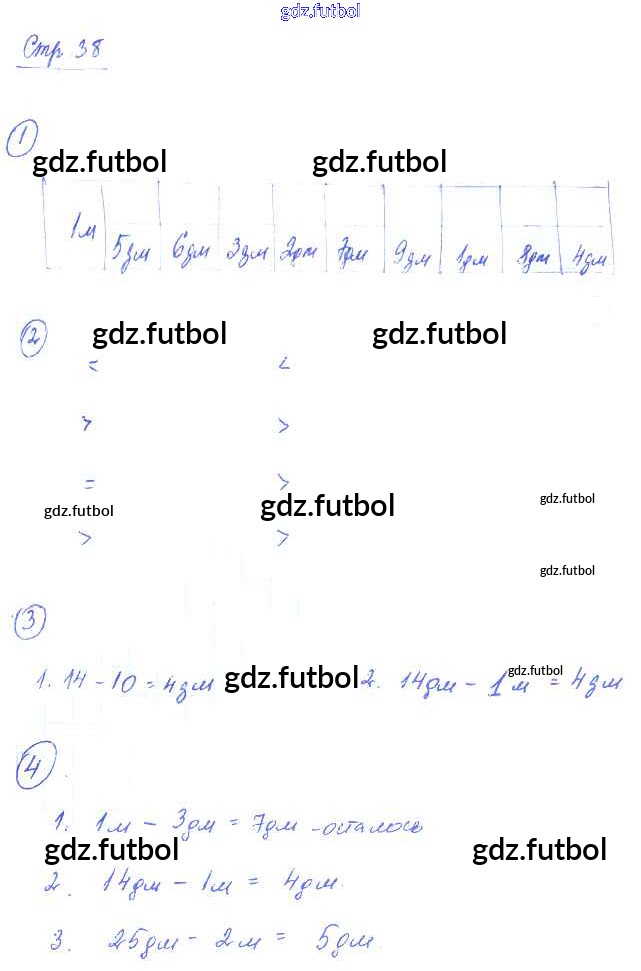 gdz.futbol
Стр 38
1
gdz.futbol gdz.futbol
1м 5дм 6дм 3дм 2дм 7дм 9дм 1дм 8дм 4дм
2
gdz.futbol gdz.futbol
= <
> >
= >
gdz.futbol gdz.futbol gdz.futbol
> >
gdz.futbol
3
1. 14 - 10 = 4дм gdz.futbol 2. 14дм - 1м = 4дм
gdz.futbol
4
1. 1м - 3дм = 7дм - осталось
gdz.futbol gdz.futbol
2. 14дм - 1м = 4дм.
3. 25дм - 2м = 5дм.